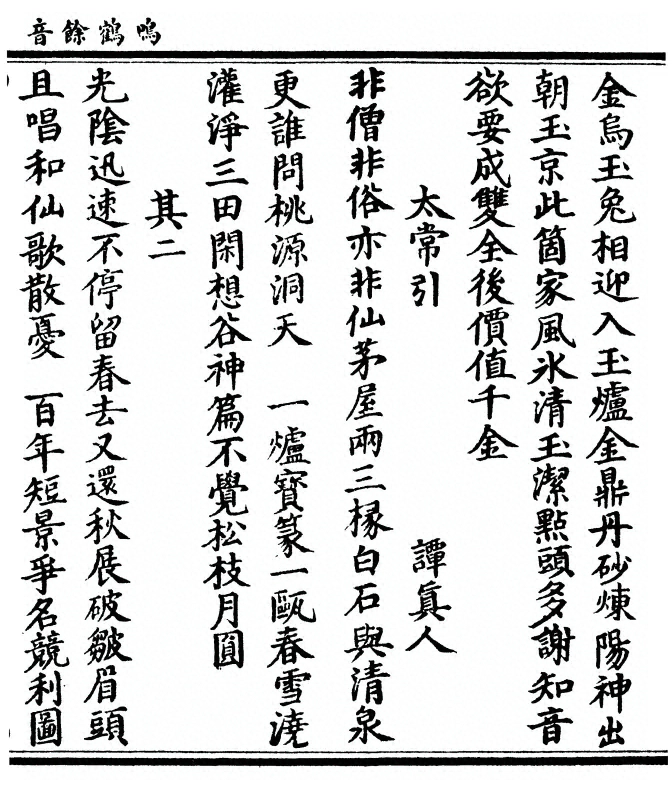 鳴鶴餘音
金烏玉兔相迎入玉爐金鼎丹砂煉陽神出
朝玉京此箇家風氷清玉潔㸃頭多謝知音
欲要成雙全後價值千金
太常引　譚眞人
非僧非俗亦非仙茅屋兩三椽白石與清泉
更誰問桃源洞天　一爐寳篆一甌春雪澆
灌淨三田閑想谷神篇不覺松枝月圓
其二
光陰迅速不停留春去又還秋展破皺眉頭
且唱和仙歌散憂　百年短景爭名競利圖